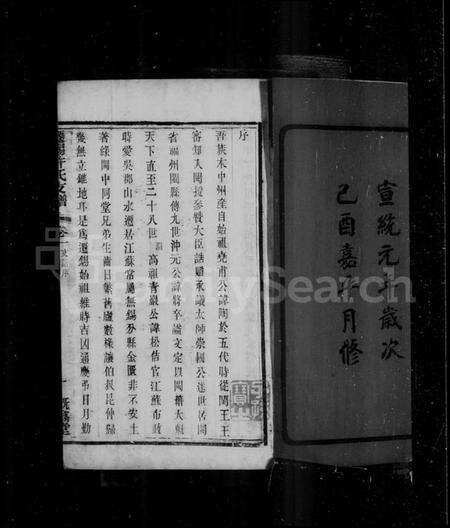 宣統元年歲次
己酉嘉平月修
序
吾族本中州產自始祖堯甫公諱陶於五代時從閩王王
審知入閩授參贊大臣誥贈承議太師崇國公遂世居閩
省福州閩縣傳九世沖元公諱將卒諡文定以閩籍大顯
天下直至二十八世 高祖青巖公諱松佶官江蘇布政
時愛吳郡山水遷居江蘇常州無錫分縣金匱非不安土
著緣閩中同堂兄弟生齒日繁舊廬數椽讓伯叔昆仲歸
幾無立錐地耳是爲遷錫始祖維時吉凶通慶弔日月勤
卷一
FamilySearch